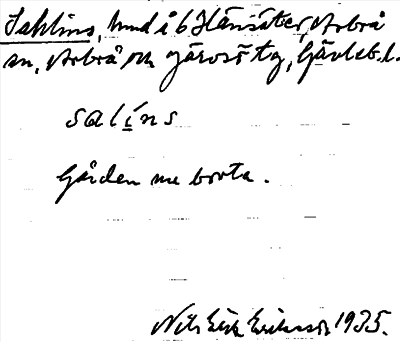 Sahlins, hmd å 6 Hänsäter, Arbrå
sn, Arbrå och Järvsö tg, Gävleb.l.
salins
Gården nu borta.
Nils Erik Eriksson 1935.